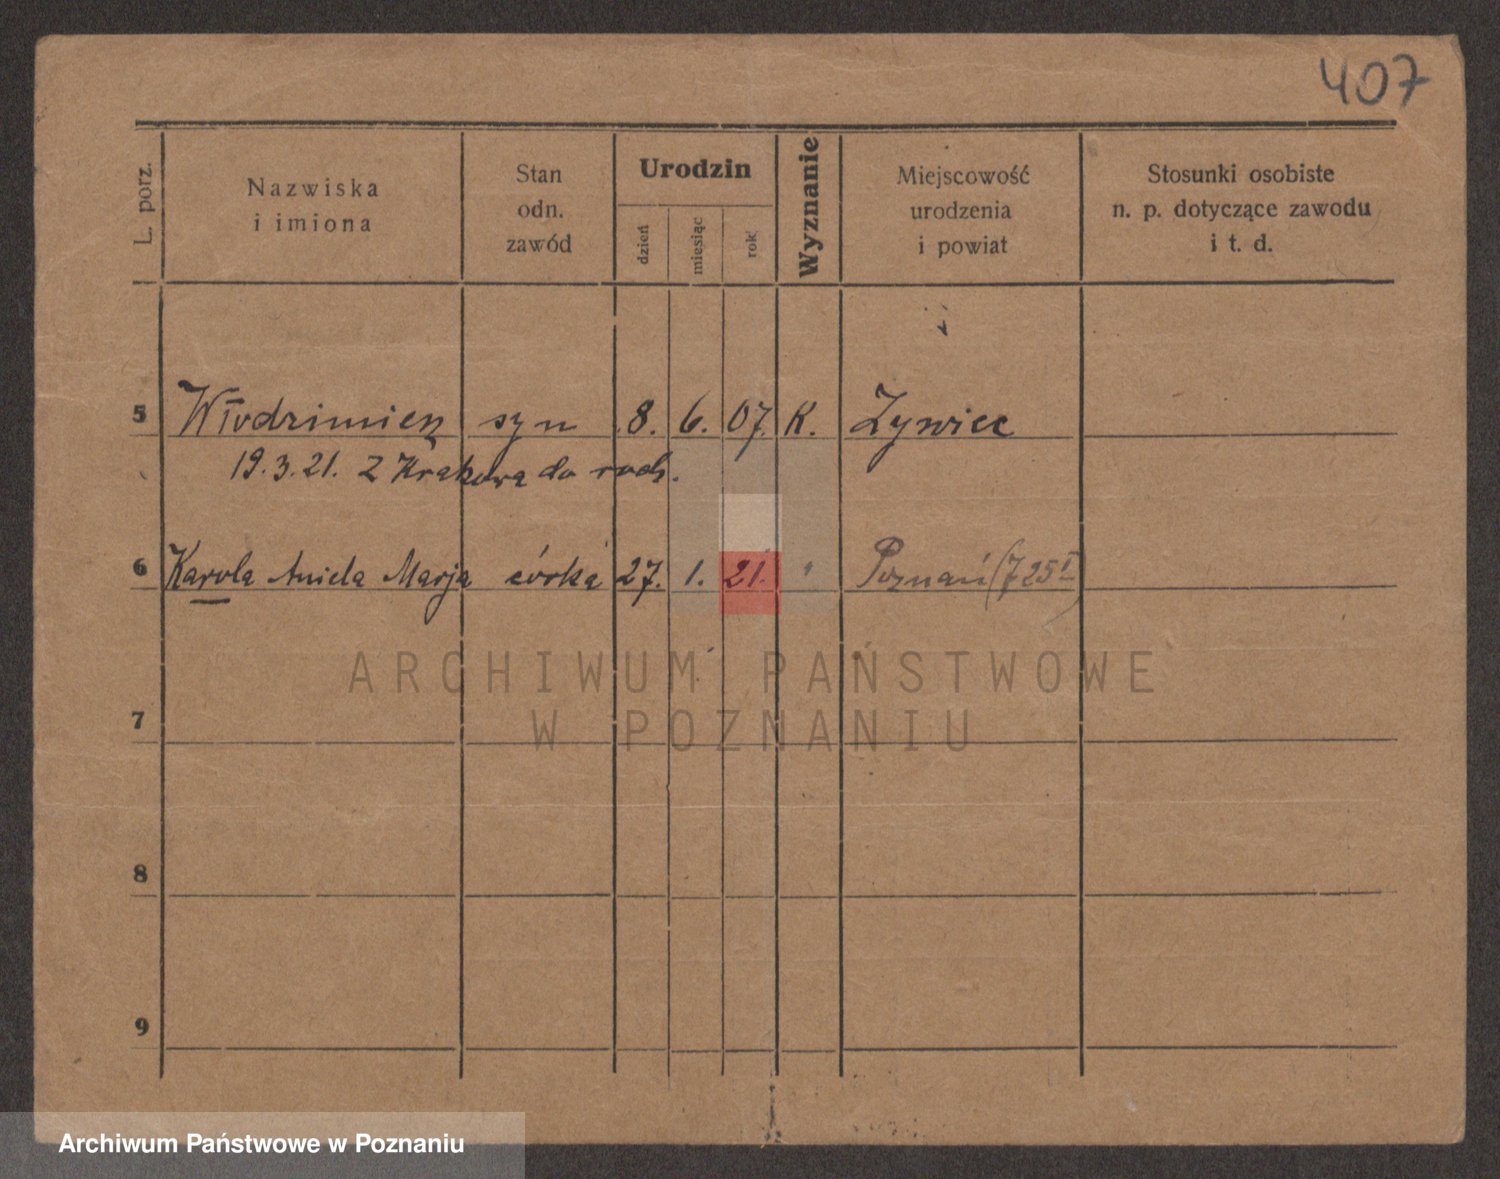 407
L. porz.
Nazwiska
i imiona
Stan
odn.
zawód
Urodzin
dzień
miesiąc
rok
Wyznanie
Miejscowość
urodzenia
i powiat
Stosunki osobiste
n. p. dotyczące zawodu
i t. d.
5 Włodzimierz syn 8. 6. 07. K. Żywiec
19.3.21. Z Krakowa do rodz.
6 Karola Aniela Marja córka 27. 1. 21. " Poznań (725 I)
ARCHIWUM PAŃSTWOWE
W POZNANIU
7
8
9
Archiwum Państwowe w Poznaniu